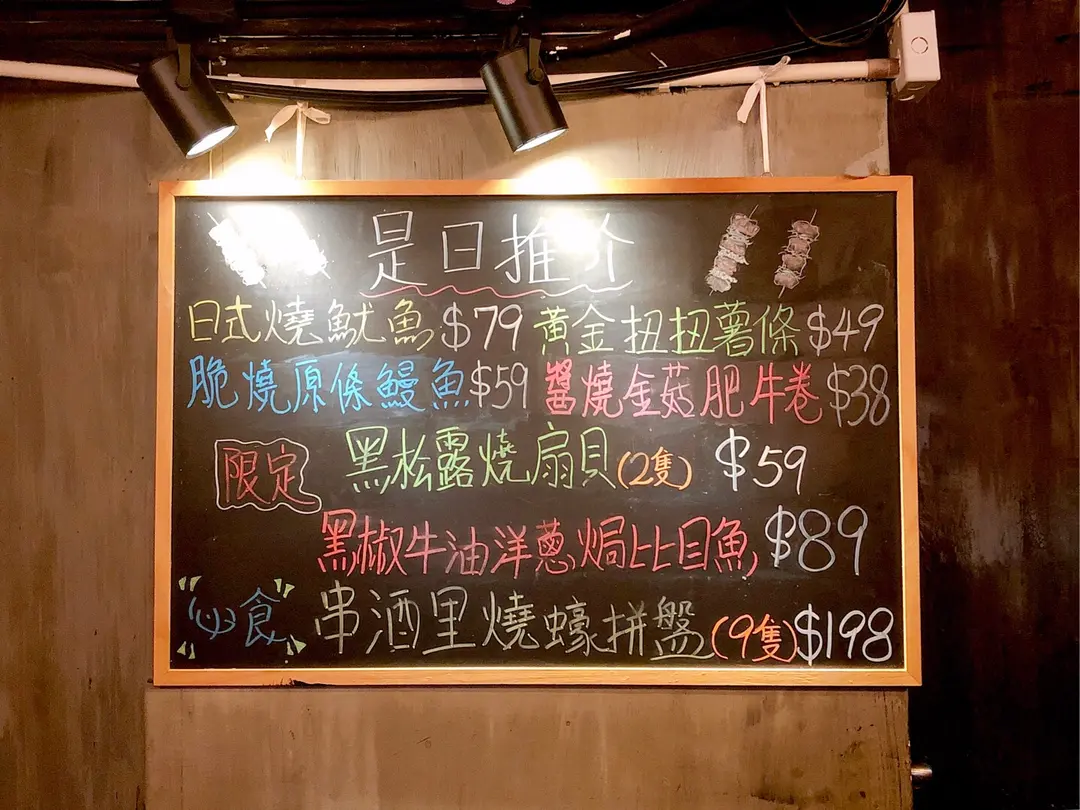 是日推介
日式燒魷魚 $79 黃金扭扭薯條 $49
脆燒原條鰻魚 $59 醬燒金菇肥牛卷 $38
限定 黑松露燒扇貝(2隻) $59
黑椒牛油洋蔥焗比目魚 $89
必食 串酒里燒蠔拼盤(9隻) $198